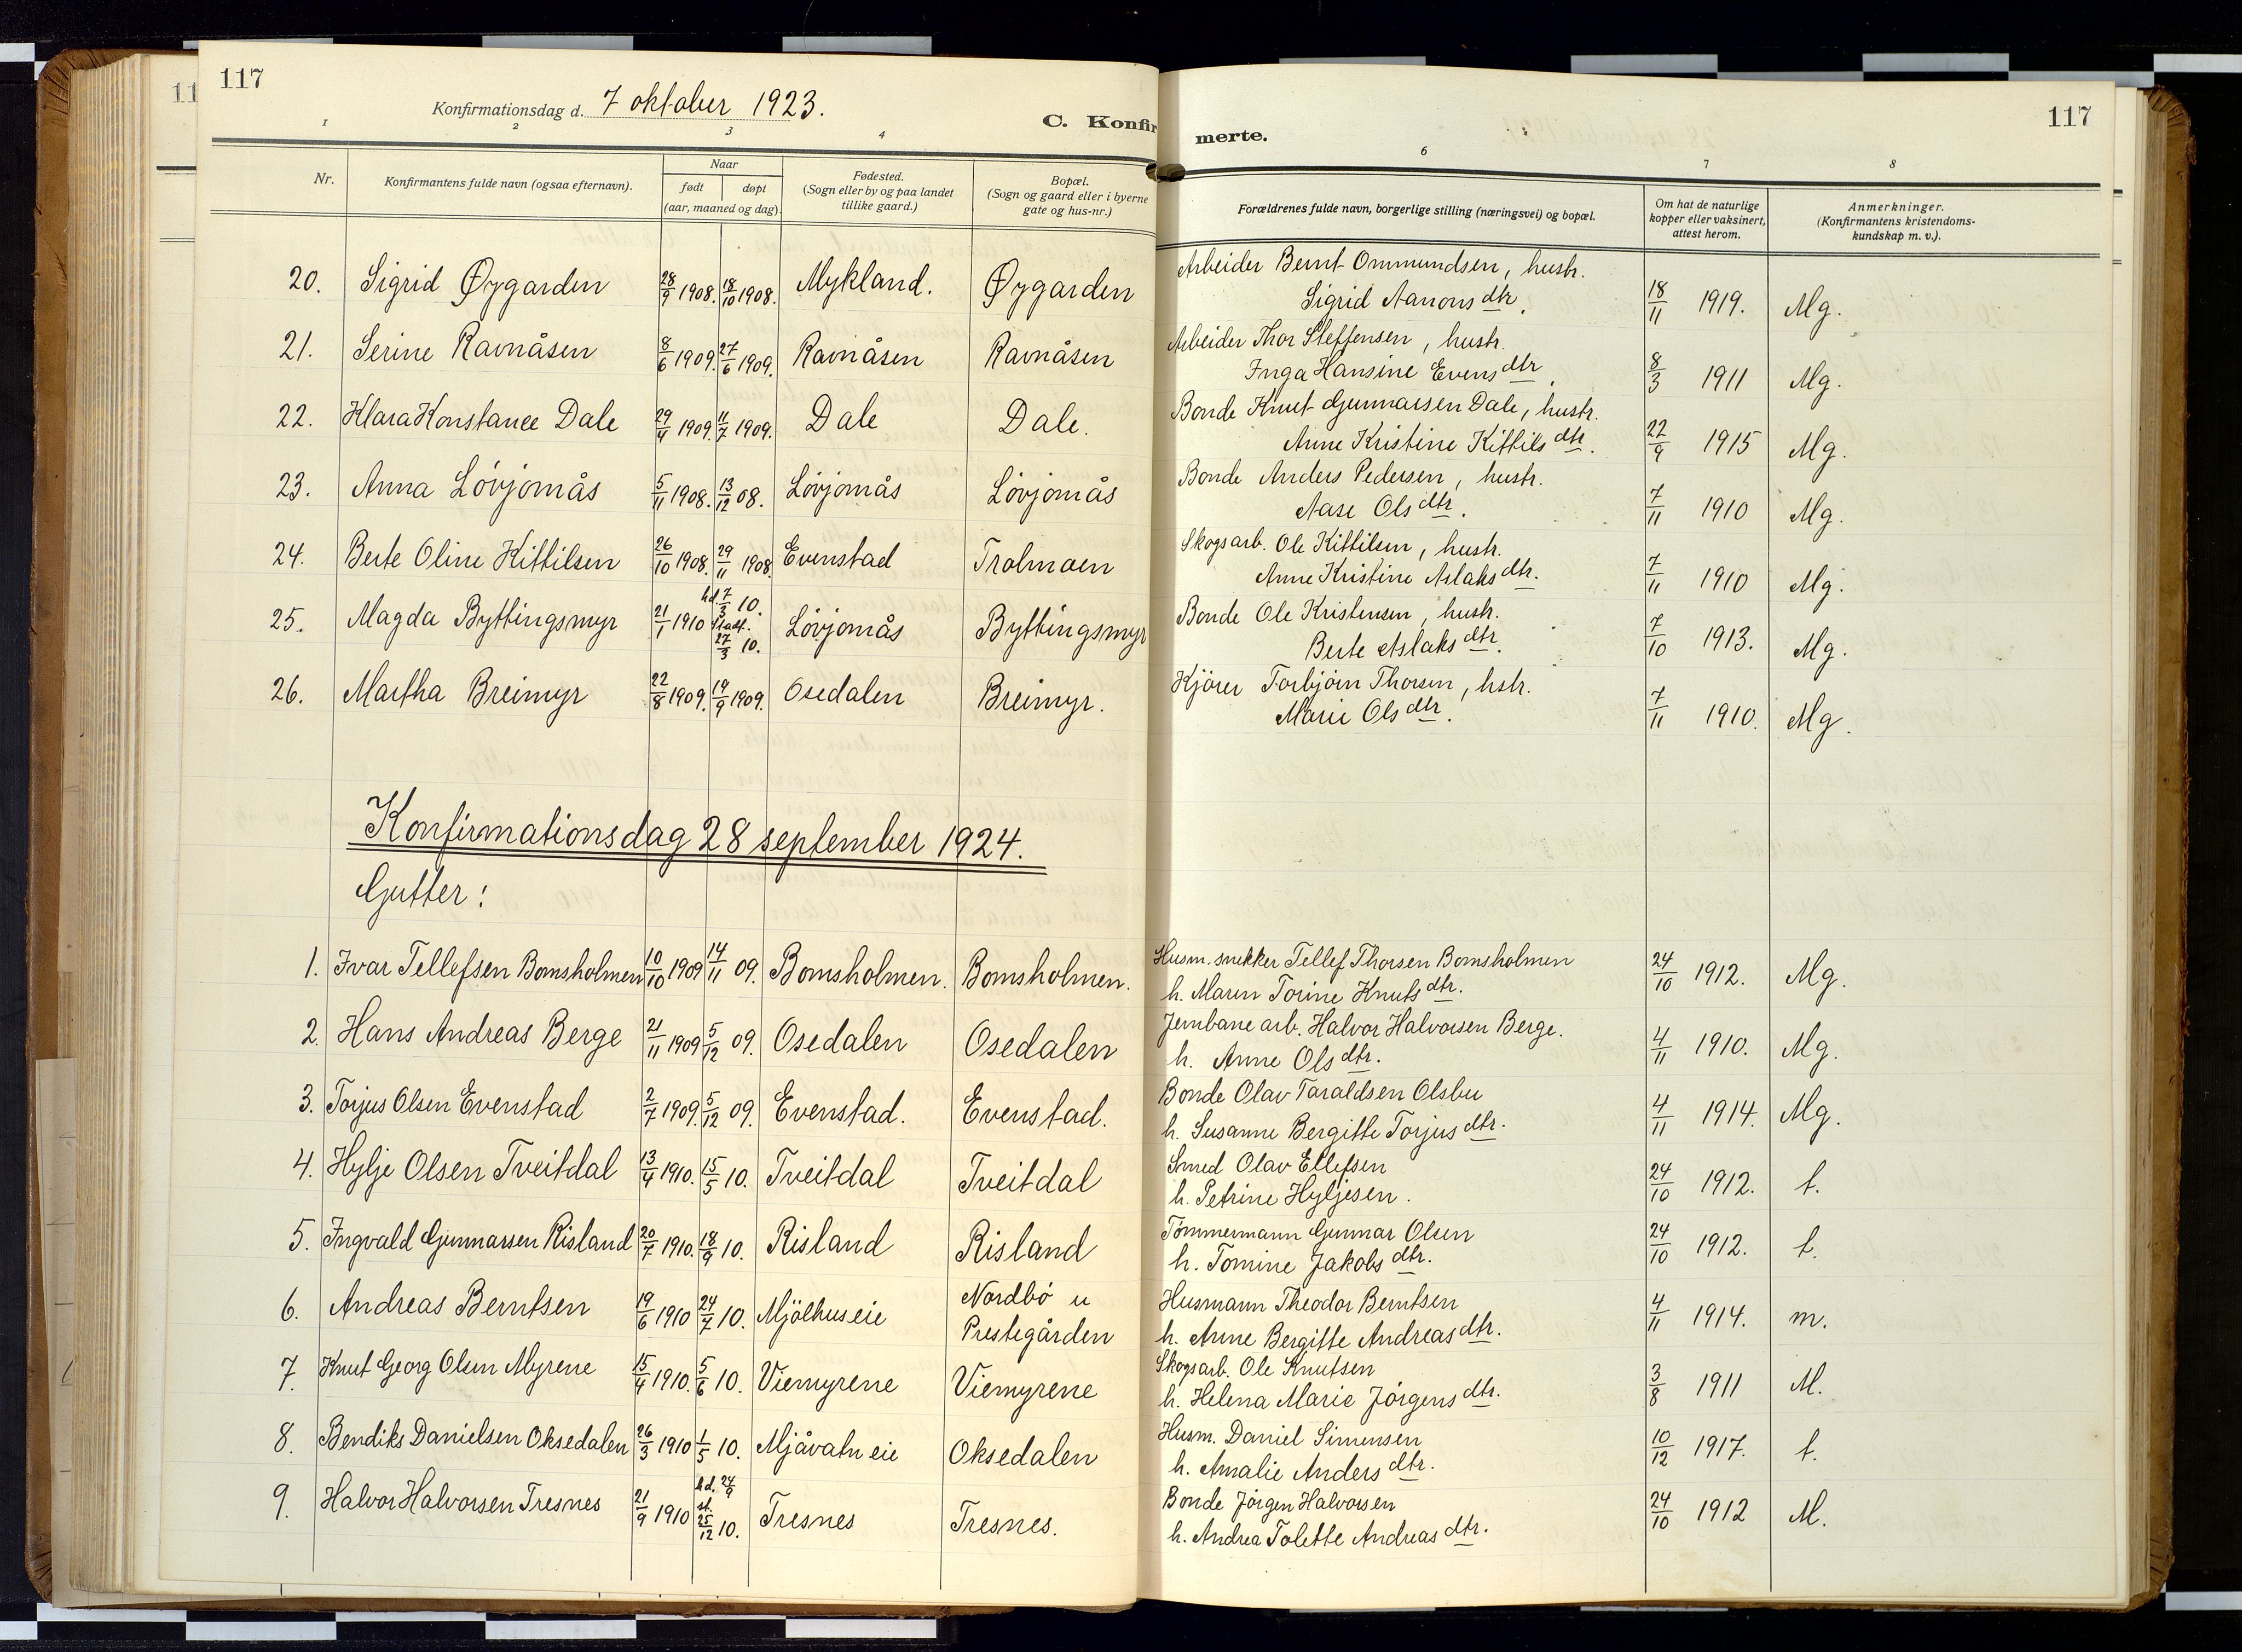 117
Konfirmationsdag d. 7 oktober 1923.
C. Konfirmerte.
117
1 2 3 4 6 7 8
Nr. Konfirmantens fulde navn (ogsaa efternavn). Naar født døpt (aar, maaned og dag). Fødested. (Sogn eller by og paa landet tillike gaard.) Bopæl. (Sogn og gaard eller i byerne gate og hus-nr.) Forældrenes fulde navn, borgerlige stilling (næringsvei) og bopæl. Om hat de naturlige kopper eller vaksinert, attest herom. Anmerkninger. (Konfirmantens kristendomskundskap m. v.).
20. Sigrid Øygarden 28/9 1908. 18/10 1908. Mykland. Øygarden Arbeider Bernt Ommundsen, hustr.
Sigrid Aanons dtr. 18/11 1919. Mg.
21. Serine Ravnåsen 8/6 1909. 27/6 1909. Ravnåsen Ravnåsen Arbeider Thor Steffensen, hustr.
Inga Hansine Evens dtr. 8/3 1911 Mg.
22. Klara Konstance Dale 29/4 1909. 11/7 1909. Dale Dale. Bonde Knut Gunnarsen Dale, hustr.
Anne Kristine Kittils dtr. 22/9 1915 Mg.
23. Anna Løvjomås 5/11 1908. 13/12 08. Løvjomås Løvjomås Bonde Anders Pedersen, hustr.
Aase Ols dtr. 7/11 1910 Mg.
24. Berte Oline Kittilsen 26/10 1908. 29/11 1908. Evenstad Trolmoen Skogsarb. Ole Kittilsen, hustr.
Anne Kristine Aslaks dtr. 7/11 1910 Mg.
25. Magda Byttingsmyr 21/1 1910 hd. 7/3 10. stadf. 27/3 10. Løvjomås Byttingsmyr Bonde Ole Kristensen, hustr.
Berte Aslaks dtr. 7/10 1913. Mg.
26. Martha Breimyr 22/8 1909. 19/9 1909. Osedalen Breimyr. Kjører Torbjørn Thorsen, hstr.
Marie Ols dtr. 7/11 1910. Mg.
Konfirmationsdag 28 september 1924.
Gutter:
1. Ivar Tellefsen Bomsholmen 10/10 1909 14/11 09. Bomsholmen. Bomsholmen. Husm. snekker Tellef Thorsen Bomsholmen
h. Maren Torine Knuts dtr. 24/10 1912. Mg.
2. Hans Andreas Berge 21/11 1909 5/12 09. Osedalen Osedalen Jernbanearb. Halvor Halvorsen Berge.
h. Anne Ols dtr. 4/11 1910. Mg.
3. Torjus Olsen Evenstad 2/7 1909. 5/12 09. Evenstad. Evenstad. Bonde Olav Taraldsen Olsbu
h. Susanne Bergitte Torjus dtr. 4/11 1914. Mg.
4. Hylje Olsen Tveitdal 13/4 1910. 15/5 10. Tveitdal Tveitdal Smed Olav Ellefsen
h. Petrine Hyljesen. 24/10 1912. t.
5. Ingvald Gunnarsen Risland 20/7 1910. 18/9 10. Risland Risland Tømmermann Gunnar Olsen
h. Tomine Jakobs dtr. 24/10 1912. t.
6. Andreas Berntsen 19/6 1910 24/7 10. Mjölhuseie Nordbø u Prestegården Husmann Theodor Berntsen
h. Anne Bergitte Andreas dtr. 4/11 1914. m.
7. Knut Georg Olsen Myrene 15/4 1910. 5/6 10. Viemyrene Viemyrene Skogsarb. Ole Knutsen
h. Helena Marie Jörgens dtr. 3/8 1911 M.
8. Bendiks Danielsen Oksedalen 26/3 1910 1/5 10. Mjåvatn eie Oksedalen Husm. Daniel Simensen
h. Amalie Anders dtr. 10/12 1917. t.
9. Halvor Halvorsen Tresnes 21/9 1910 hd. 24/9 st. 25/12 10. Tresnes Tresnes. Bonde Jörgen Halvorsen
h. Andrea Tolette Andreas dtr. 24/10 1912 M.